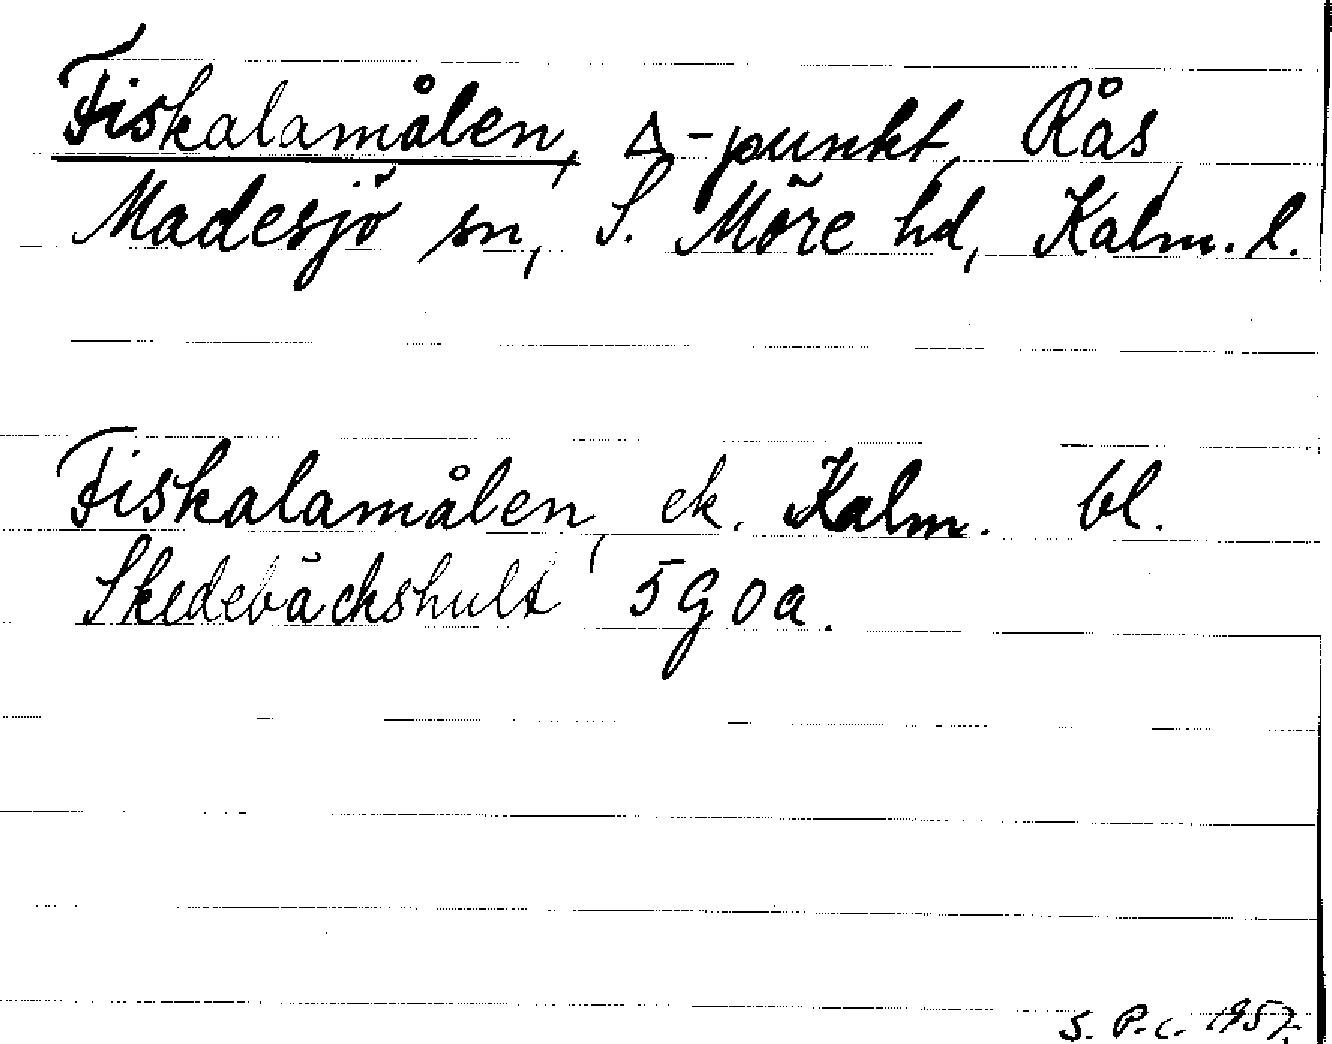 Fiskalamålen, △-punkt, Rås,
Madesjö sn, S. Möre hd, Kalm. l.
Fiskalamålen, ek. Kalm. bl.
Skedebäckshult 5 G 0 a.
S. P.C. 1957.